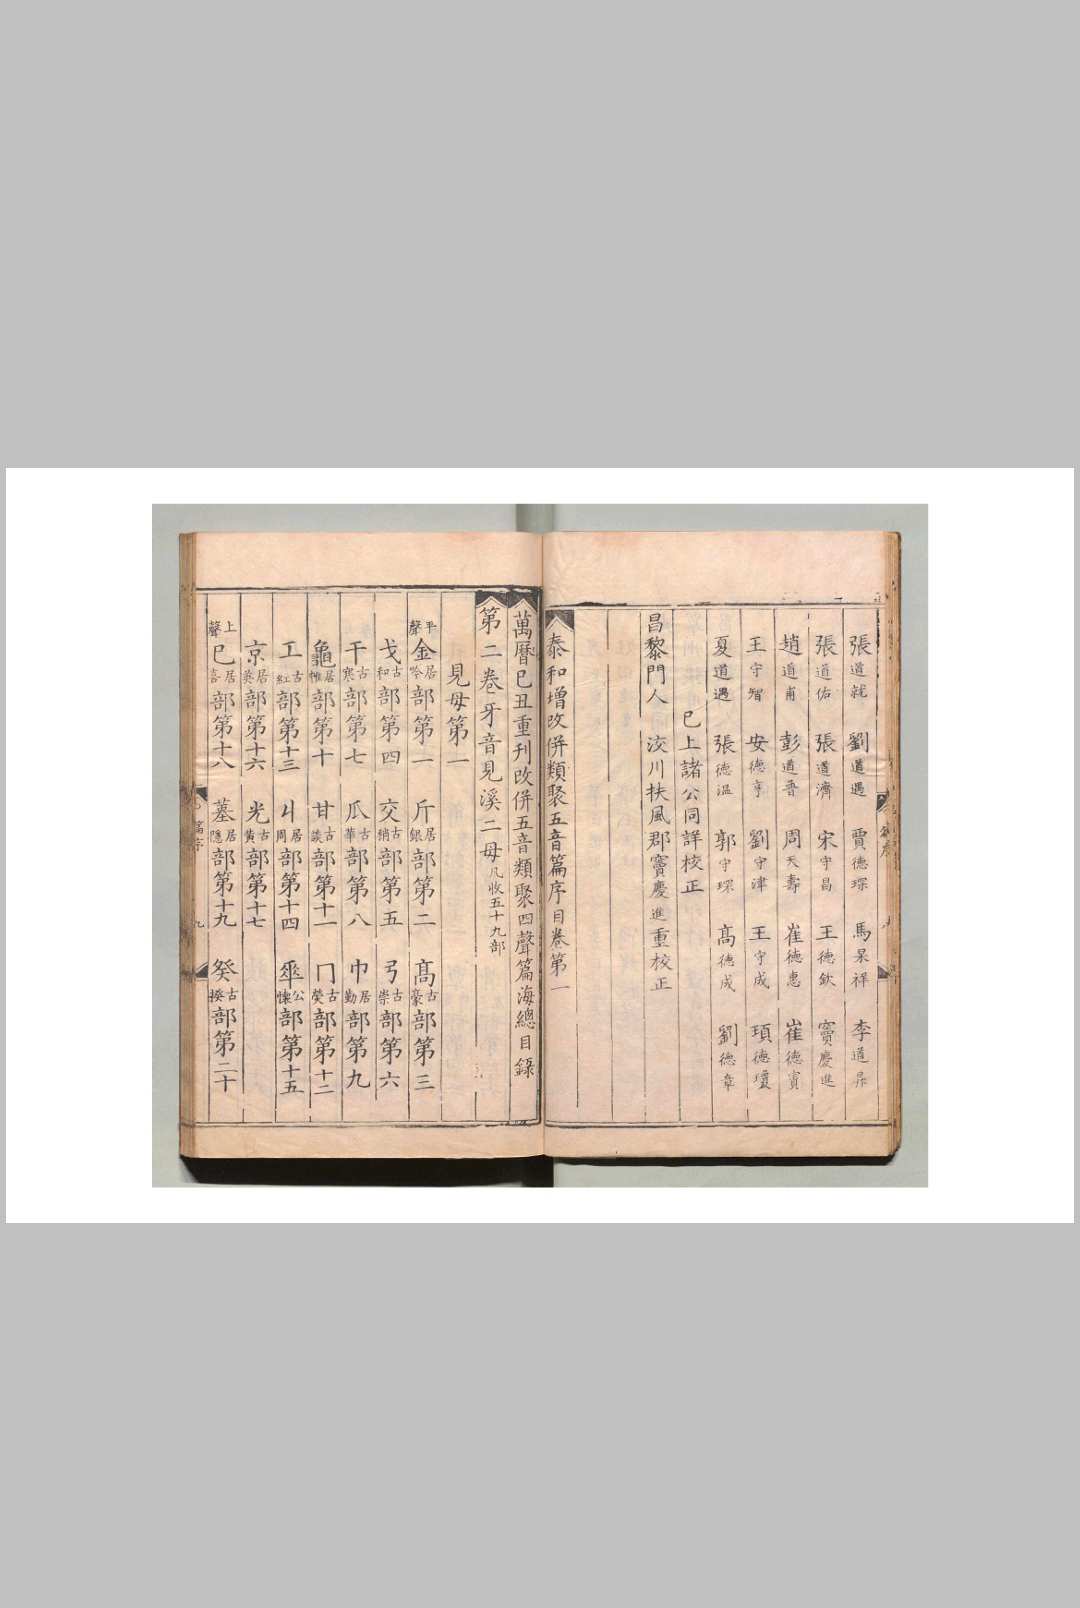 張道就 劉道遇 賈德琛 馬杲祥 李道昇
張道佑 張道濟 宋宇昌 王德欽 竇慶進
趙道甫 彭道晋 周天壽 崔德惠 崔德賓
王守智 安德亨 劉守津 王守成 項德瓊
夏道遇 張德温 郭守琛 高德成 劉德章
已上諸公同詳校正
昌黎門人 洨川扶風郡竇慶進重校正
泰和增改併類聚五音篇序目卷第一
萬曆己丑重刊改併五音類聚四聲篇海總目錄
第二卷牙音見溪二母凡收五十九部
見母第一
平聲金居吟部第一 斤居銀部第二 高古豪部第三
戈古和部第四 交古肴部第五 弓古崇部第六
干古寒部第七 瓜古華部第八 巾居勤部第九
龜居惟部第十 甘古談部第十一 冂古熒部第十二
工古紅部第十三 丩居周部第十四 𠦬公懷部第十五
京居英部第十六 光古黄部第十七
上聲己居喜部第十八 堇居隱部第十九 癸古揆部第二十
篇序 九